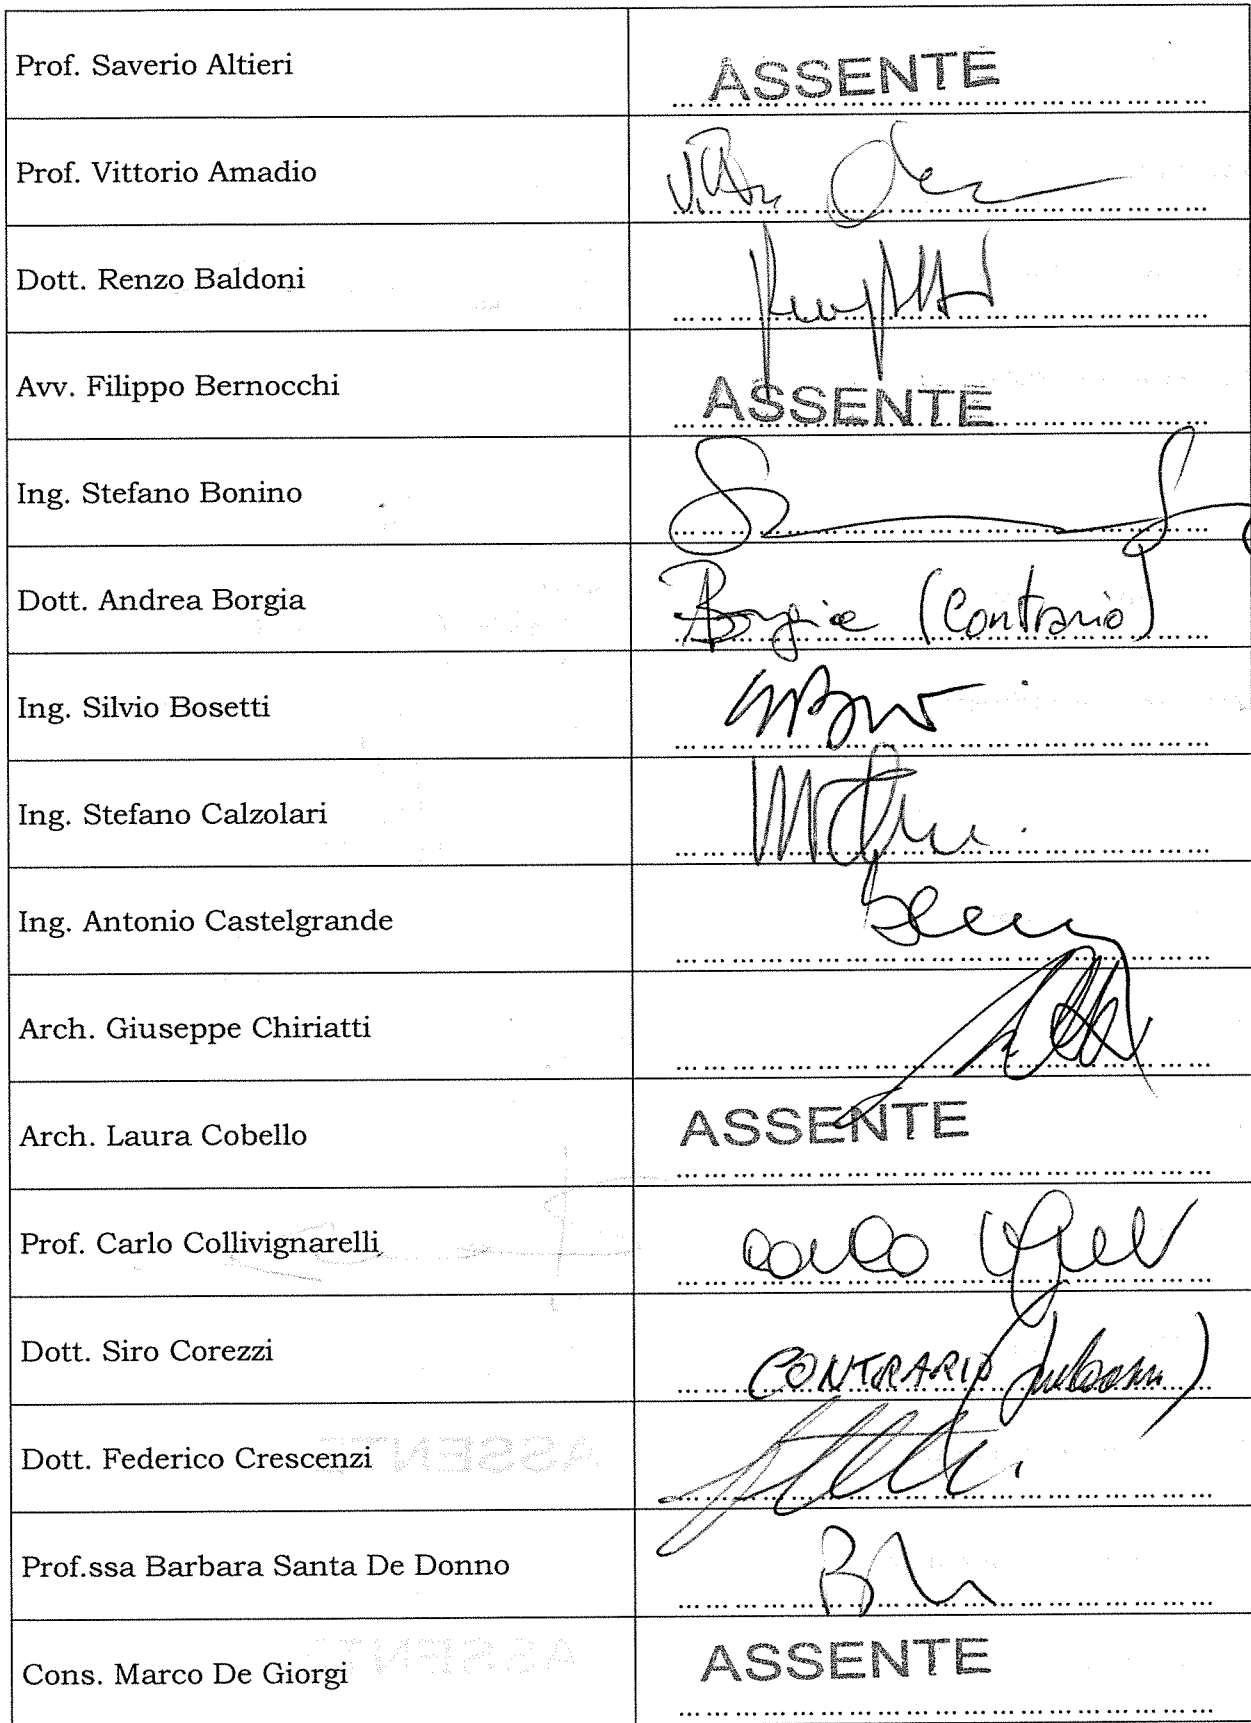 Prof. Saverio Altieri ASSENTE
Prof. Vittorio Amadio
Dott. Renzo Baldoni
Avv. Filippo Bernocchi ASSENTE
Ing. Stefano Bonino
Dott. Andrea Borgia Borgia (Contrario)
Ing. Silvio Bosetti
Ing. Stefano Calzolari
Ing. Antonio Castelgrande
Arch. Giuseppe Chiriatti
Arch. Laura Cobello ASSENTE
Prof. Carlo Collivignarelli Carlo
Dott. Siro Corezzi CONTRARIO
Dott. Federico Crescenzi
Prof.ssa Barbara Santa De Donno
Cons. Marco De Giorgi ASSENTE